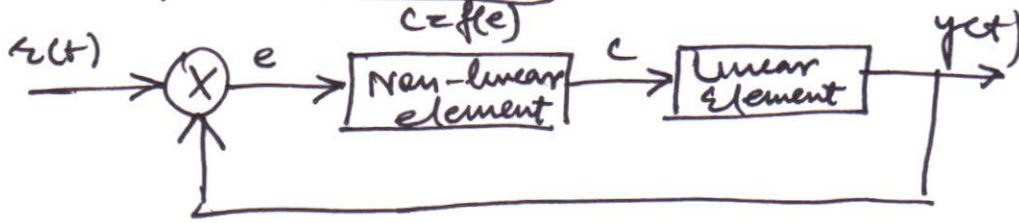 c=f(e)
r(t)
e
Non-linear element
c
Linear Element
y(t)